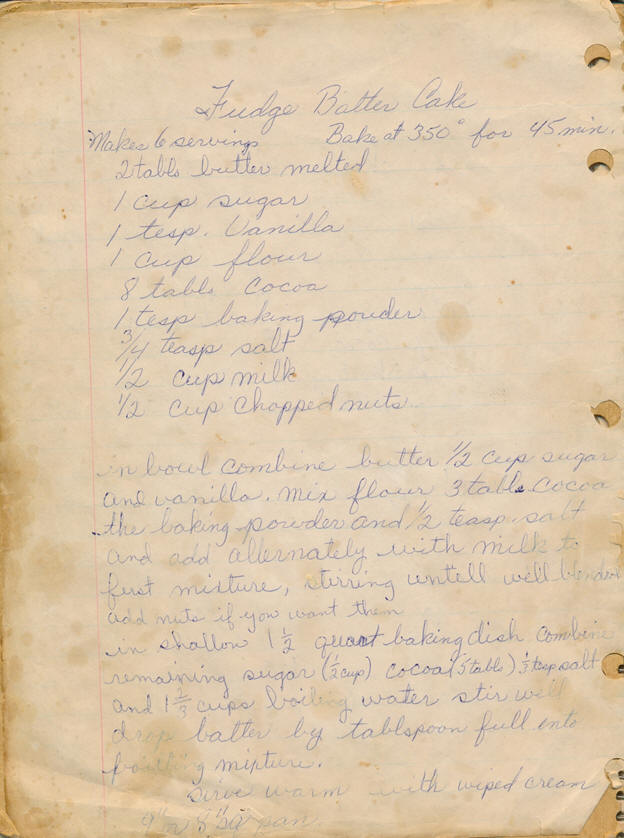 Fudge Batter Cake
Makes 6 servings Bake at 350° for 45 min.
2 tabls butter melted
1 cup sugar
1 tesp. Vanilla
1 cup flour
8 tabls cocoa
1 tesp baking powder
3/4 teasp salt
1/2 cup milk
1/2 cup Chopped nuts
in bowl combine butter 1/2 cup sugar
and vanilla. mix flour 3 tabls. cocoa
the baking powder and 1/2 teasp. salt
and add allernately with milk to
first mixture, stirring untell well blended
add nuts if you want them
in shallow 1 1/2 quart baking dish combine
remaining sugar (1/2 cup) cocoa (5 tabls) salt
and 1 2/3 cups boiling water stir well
drop batter by tablspoon full into
boiling mixture.
serve warm with wiped cream
9" 8" sq pan